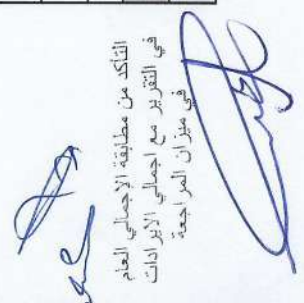 التأكد من مطابقة الاجمالي العام
في التقرير مع اجمالي الايرادات
في ميزان المراجعة